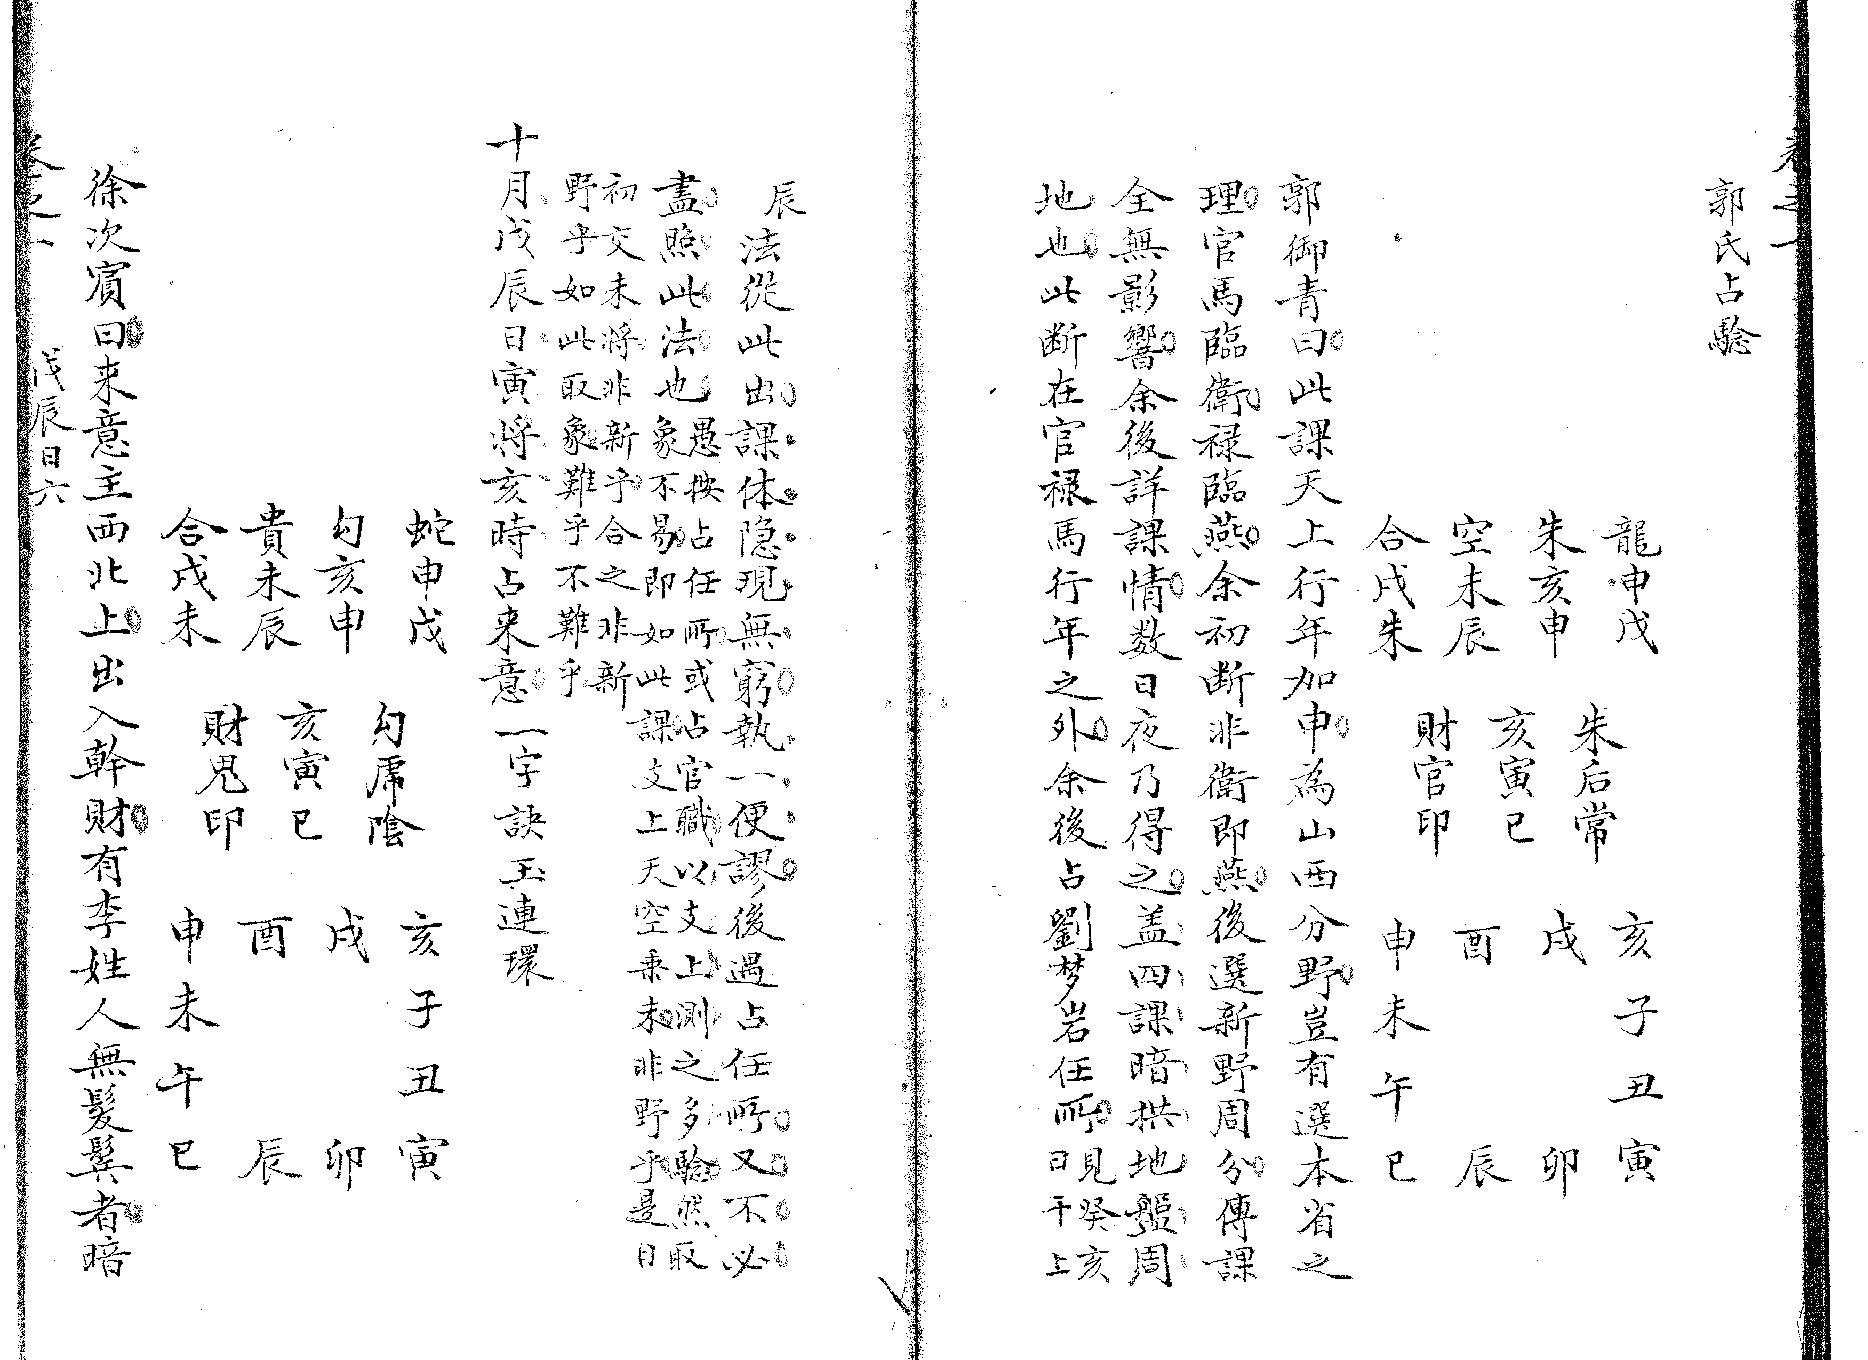 卷之一
郭氏占驗
龍申戊　朱后常　亥子丑寅
朱亥申　亥寅巳　戌　卯
空未辰　財官印　酉　辰
合戌朱　申未午巳
郭御青曰此課天上行年加申為山西分野豈有選本省之
理官馬臨衛禄臨燕余初断非衛即燕後選新野周分傳課
全無影響余後詳課情数日夜乃得之盖四課暗拱地盤周
地也此断在官禄馬行年之外余後占劉梦岩任所見癸亥
日干上
辰法從此出課体隐現無窮執一便謬後遇占任所又不必
盡照此法也愚按占任所或占官職以支上測之多驗然取
象不易即如此課支上天空乗未非野乎是日
初交未将非新乎合之非新
野乎如此取象難乎不難乎
十月戊辰日寅将亥時占来意一字訣玉連環
蛇申戊　勾虎陰　亥子丑寅
勾亥申　亥寅巳　戌　卯
貴未辰　財鬼印　酉　辰
合戌未　申未午巳
徐次賓曰来意主西北上出入幹財有李姓人無髪鬓者暗
卷之一　戊辰日六